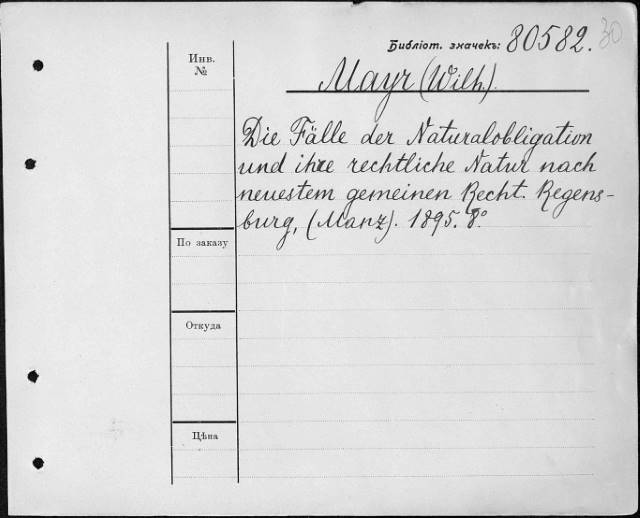 Библіот. значекъ: 80582. 30
Инв.
№
Mayr (Wilh.).
Die Fälle der Naturalobligation
und ihre rechtliche Natur nach
neuestem gemeinen Recht. Regens-
burg, (Manz). 1895. 8°.
По заказу
Откуда
Цѣна